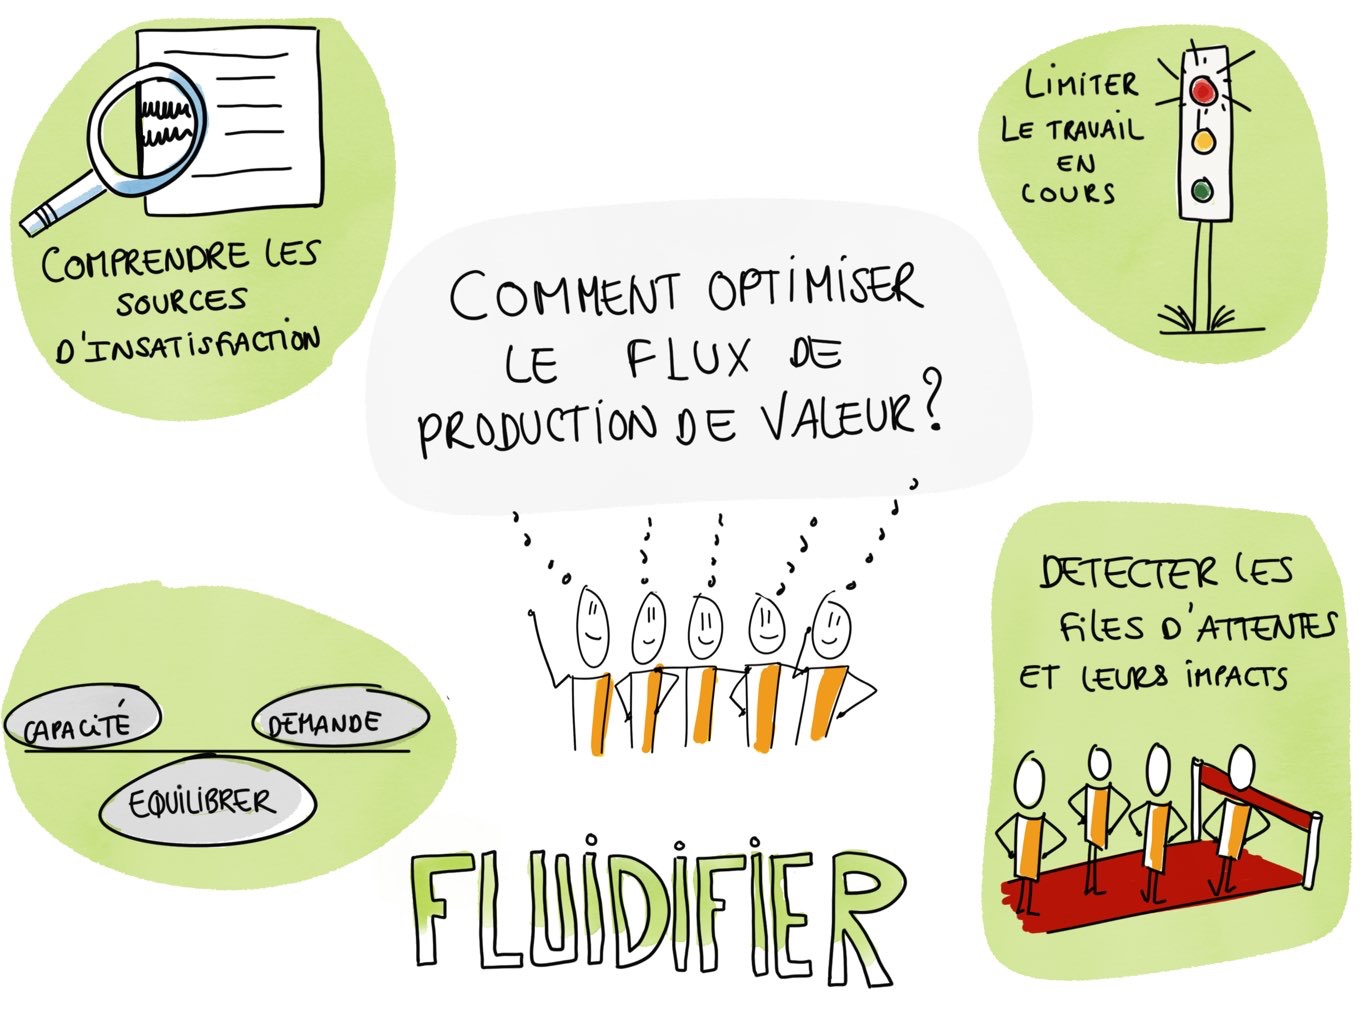 COMPRENDRE LES
SOURCES
D'INSATISFACTION
LIMITER
LE TRAVAIL
EN
COURS
COMMENT OPTIMISER
LE FLUX DE
PRODUCTION DE VALEUR?
CAPACITÉ
DEMANDE
EQUILIBRER
DETECTER LES
FILES D'ATTENTES
ET LEURS IMPACTS
FLUIDIFIER